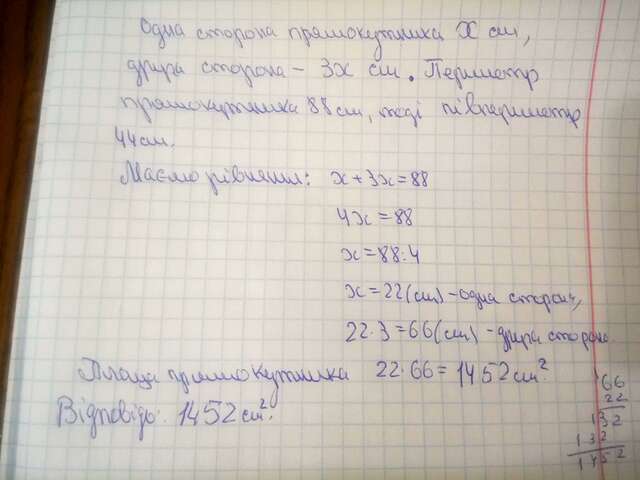 Одна сторона прямокутника x см,
друга сторона – 3x см. Периметр
прямокутника 88 см, тоді півпериметр
44 см.
Маємо рівняння: x + 3x = 88
4x = 88
x = 88 : 4
x = 22 (см) – одна сторона,
22 · 3 = 66 (см) – друга сторона.
Площа прямокутника 22 · 66 = 1452 см².
Відповідь: 1452 см².
66
22
132
132
1452